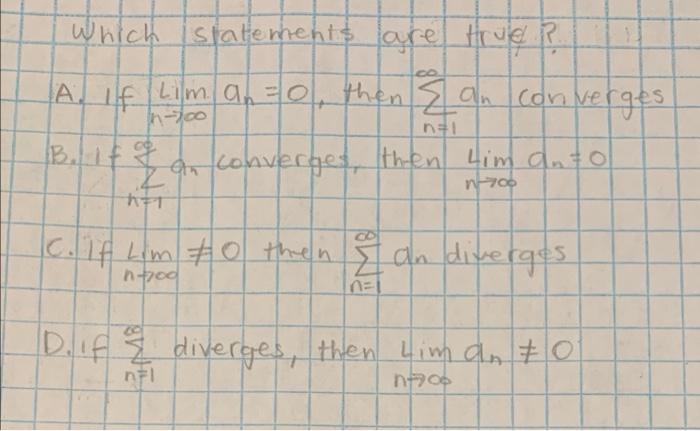 Which statements are true?
A. If Lim n→∞ an = 0, then ∞ Σ n=1 an converges
B. If ∞ Σ n=1 an converges, then Lim n→∞ an = 0
C. If Lim n→∞ ≠ 0 then ∞ Σ n=1 an diverges
D. If ∞ Σ n=1 diverges, then Lim n→∞ an ≠ 0